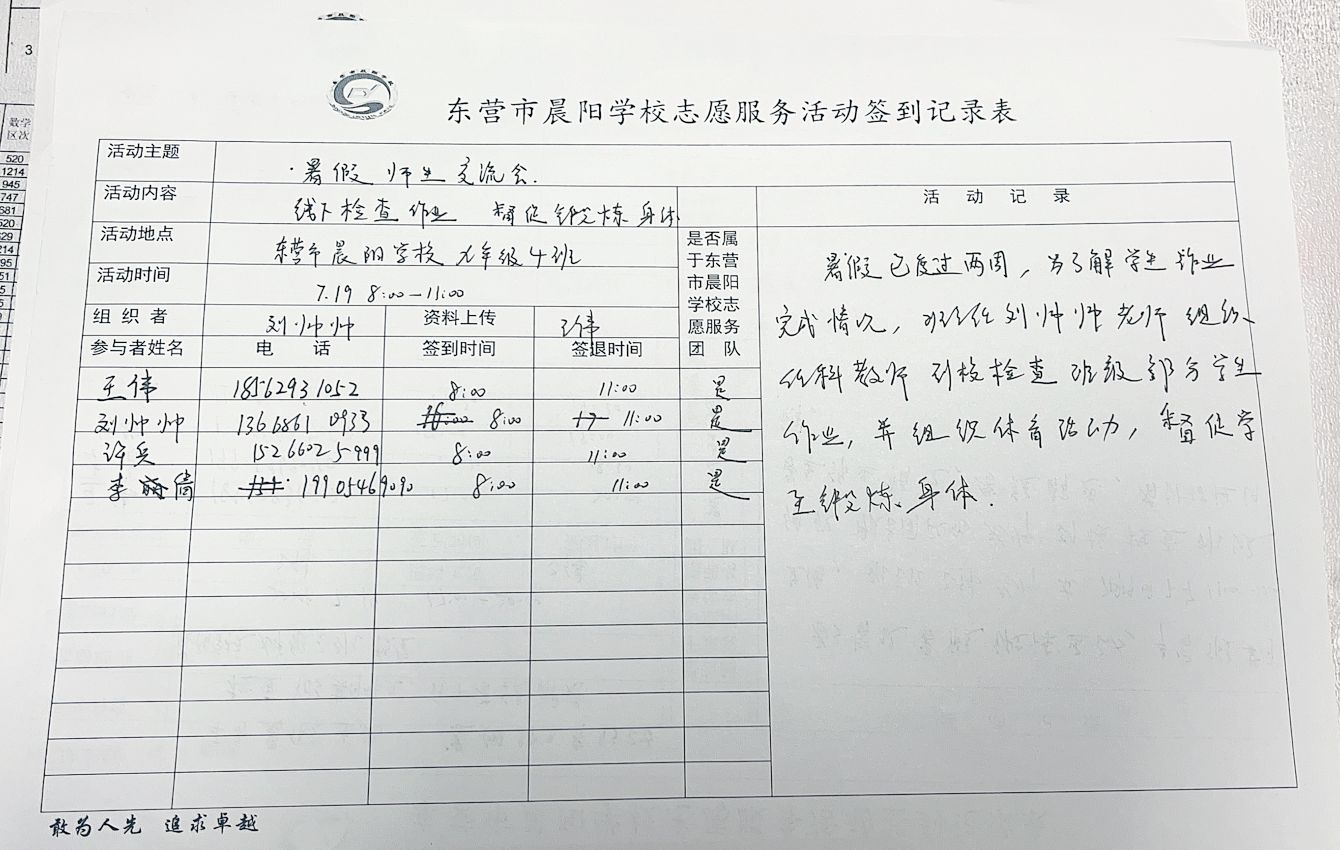 3
数学
区次
520
1214
945
747
681
520
629
214
795
东营市晨阳学校志愿服务活动签到记录表
活动主题 暑假 师生 交流会.
活动内容 线下检查作业 督促锻炼身体
活动记录
活动地点 东营市晨阳学校 九年级4班
活动时间 7.19 8:00-11:00
组织者 刘帅帅 资料上传 王伟
是否属
于东营
市晨阳
学校志
愿服务
团队
参与者姓名 电话 签到时间 签退时间
王伟 18562931052 8:00 11:00 是
刘帅帅 13668610933 8:00 11:00 是
许兵 15266025999 8:00 11:00 是
李倩 19905469090 8:00 11:00 是
暑假已度过两周，为了解学生作业
完成情况，班主任刘帅帅老师组织
任科教师到校检查班级部分学生
作业，并组织体育活动，督促学
生锻炼身体.
敢为人先 追求卓越